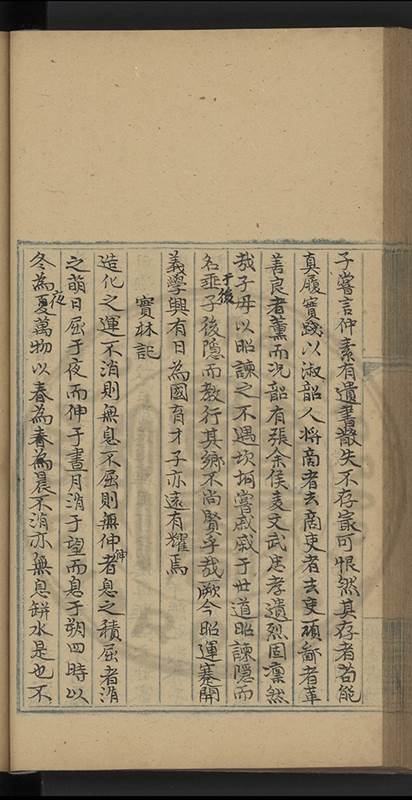 子嘗言仲素有遺書散失不存寔可恨然其存者苟能
真履實踐以淑韶人將啇者去啇吏者去吏頑鄙者革
善良者薰而况韶有張余侯麦文武忠孝遺烈固凜然
哉子毋以昭諫之不遇坎坷嘗戚戚于世道昭諫隱而
名垂于後子後隱而教行其鄉不尚賢乎哉厥今昭運蹇開
義學興有日為國育才子亦遠有耀焉
寶林記
造化之運不消則無息不屈則無伸伸者息之積屈者消
之萌日屈于夜而伸于晝月消于望而息于朔四時以
冬為夜夏萬物以春為春為晨不消亦無息缾水是也不